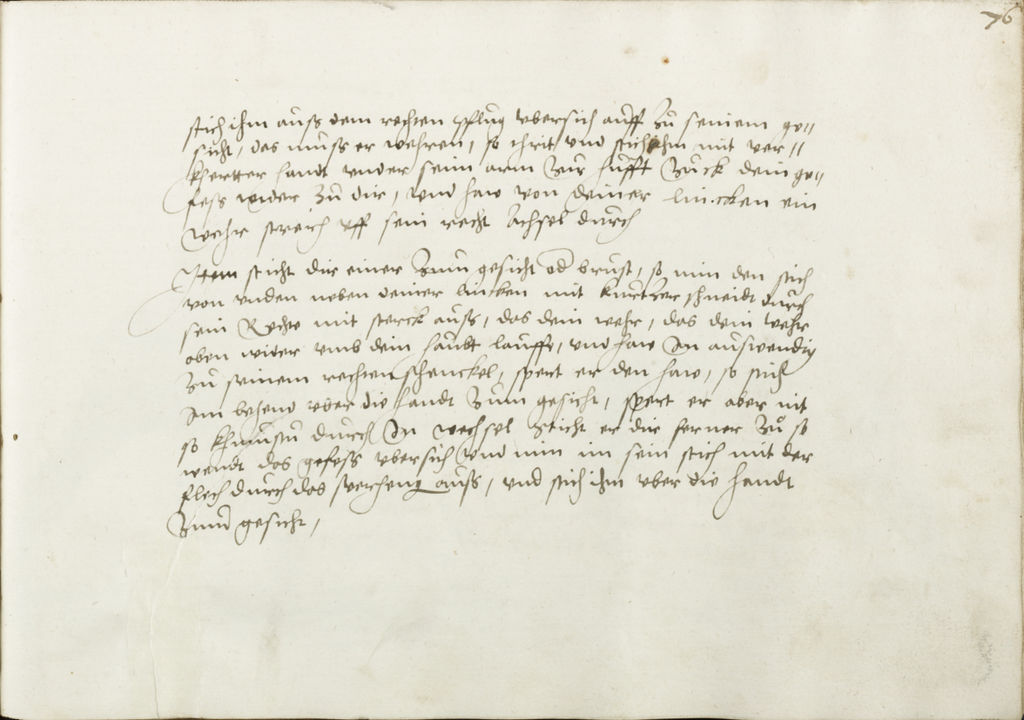 76
stich ihm auss dem rechten pflug vbersich auff zu seinem ge//
sicht, das muss er wehren, so schrit vnd stich ihm mit ver//
khertter handt vnder seim arm zur hufft Zuck dein ge//
fess wider zu dir, vnd haw von deiner lincken ein
wehr streich vff sein recht Achsel durch
Item sticht dir einer Zum gesicht od brust, so nim den stich
von vnden neben deiner lincken mit kurtzer schneidt durch
sein Rechte mit sterck auss, das dein wehr, das dein wehr
oben wider vmb dein haubt lauffe, vnd haw Im auswendig
zu seinem rechten schenckel, spert er den haw, so stich
Im behend vber die handt Zum gesicht, spert er aber mit
so durch In wechsel Sticht er dir ferner Zu so
wendt das gefess vbersich vnd nim im sein stich mit der
flech durch das auss, vnd stich ihm vber die handt
Zum gesicht,